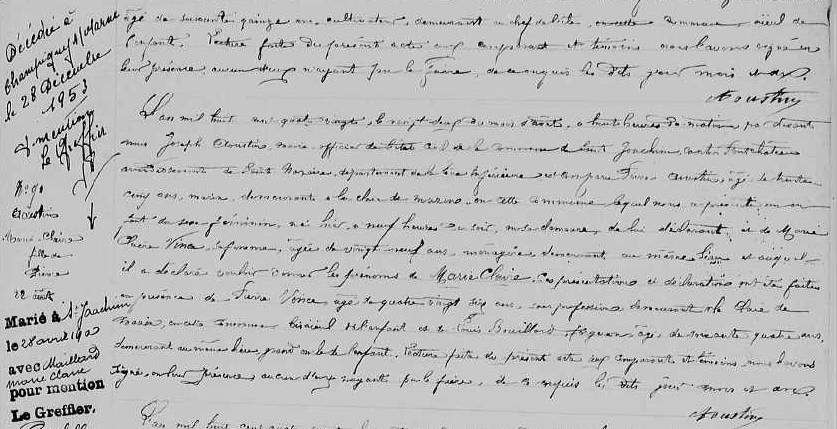 Décédée à
Champigny s/Marne
le 28 Décembre
1953
P. mention
Le Greffier
N° 90
Aoustin
Marie Claire
fille de
Pierre
22 août
Marié à St Joachim
le 28 avril
avec Maillard
Marie Claire
pour mention
Le Greffier,
âgé de soixante quinze ans, cultivateur, demeurant au chef de l'ile, en cette commune, aïeul de
l'enfant. Lecture faite du présent acte aux comparant et témoins, nous l'avons signé en
leur présence, aucun d'eux n'ayant pu le faire, de ce enquis les dits jour mois et an.
Aoustin
L'an mil huit cent quatre vingt, le vingt deux du mois d'août, à huit heures du matin, par devant
nous Joseph Aoustin, maire, officier de l'état civil de la commune de Saint Joachim, canton Pontchâteau
arrondissement de Saint Nazaire, département de la Loire Inférieure, est comparu Pierre Aoustin, âgé de trente
cinq ans, marin, demeurant à en cette commune lequel nous a présenté un enfant
du sexe féminin, né hier, à neuf heures du soir, en sa demeure, de lui déclarant, et de Marie
Pierre Vince, sa femme, âgée de vingt neuf ans, ménagère, demeurant au même lieu et auquel
il a déclaré vouloir donner les prénoms de Marie Claire. Les présentations et déclarations ont été faites
en présence de Pierre Vince âgé de quatre vingt six ans, sans profession demeurant
en cette commune bisaïeul de l'enfant et de Louis Bouillard, âgé de soixante quatre ans,
demeurant au même lieu, grand oncle de l'enfant. Lecture faite du présent acte aux comparant et témoins, nous l'avons
signé, en leur présence aucun d'eux n'ayant pu le faire, de ce enquis les dits jour mois et an.
Aoustin
L'an mil huit cent quatre